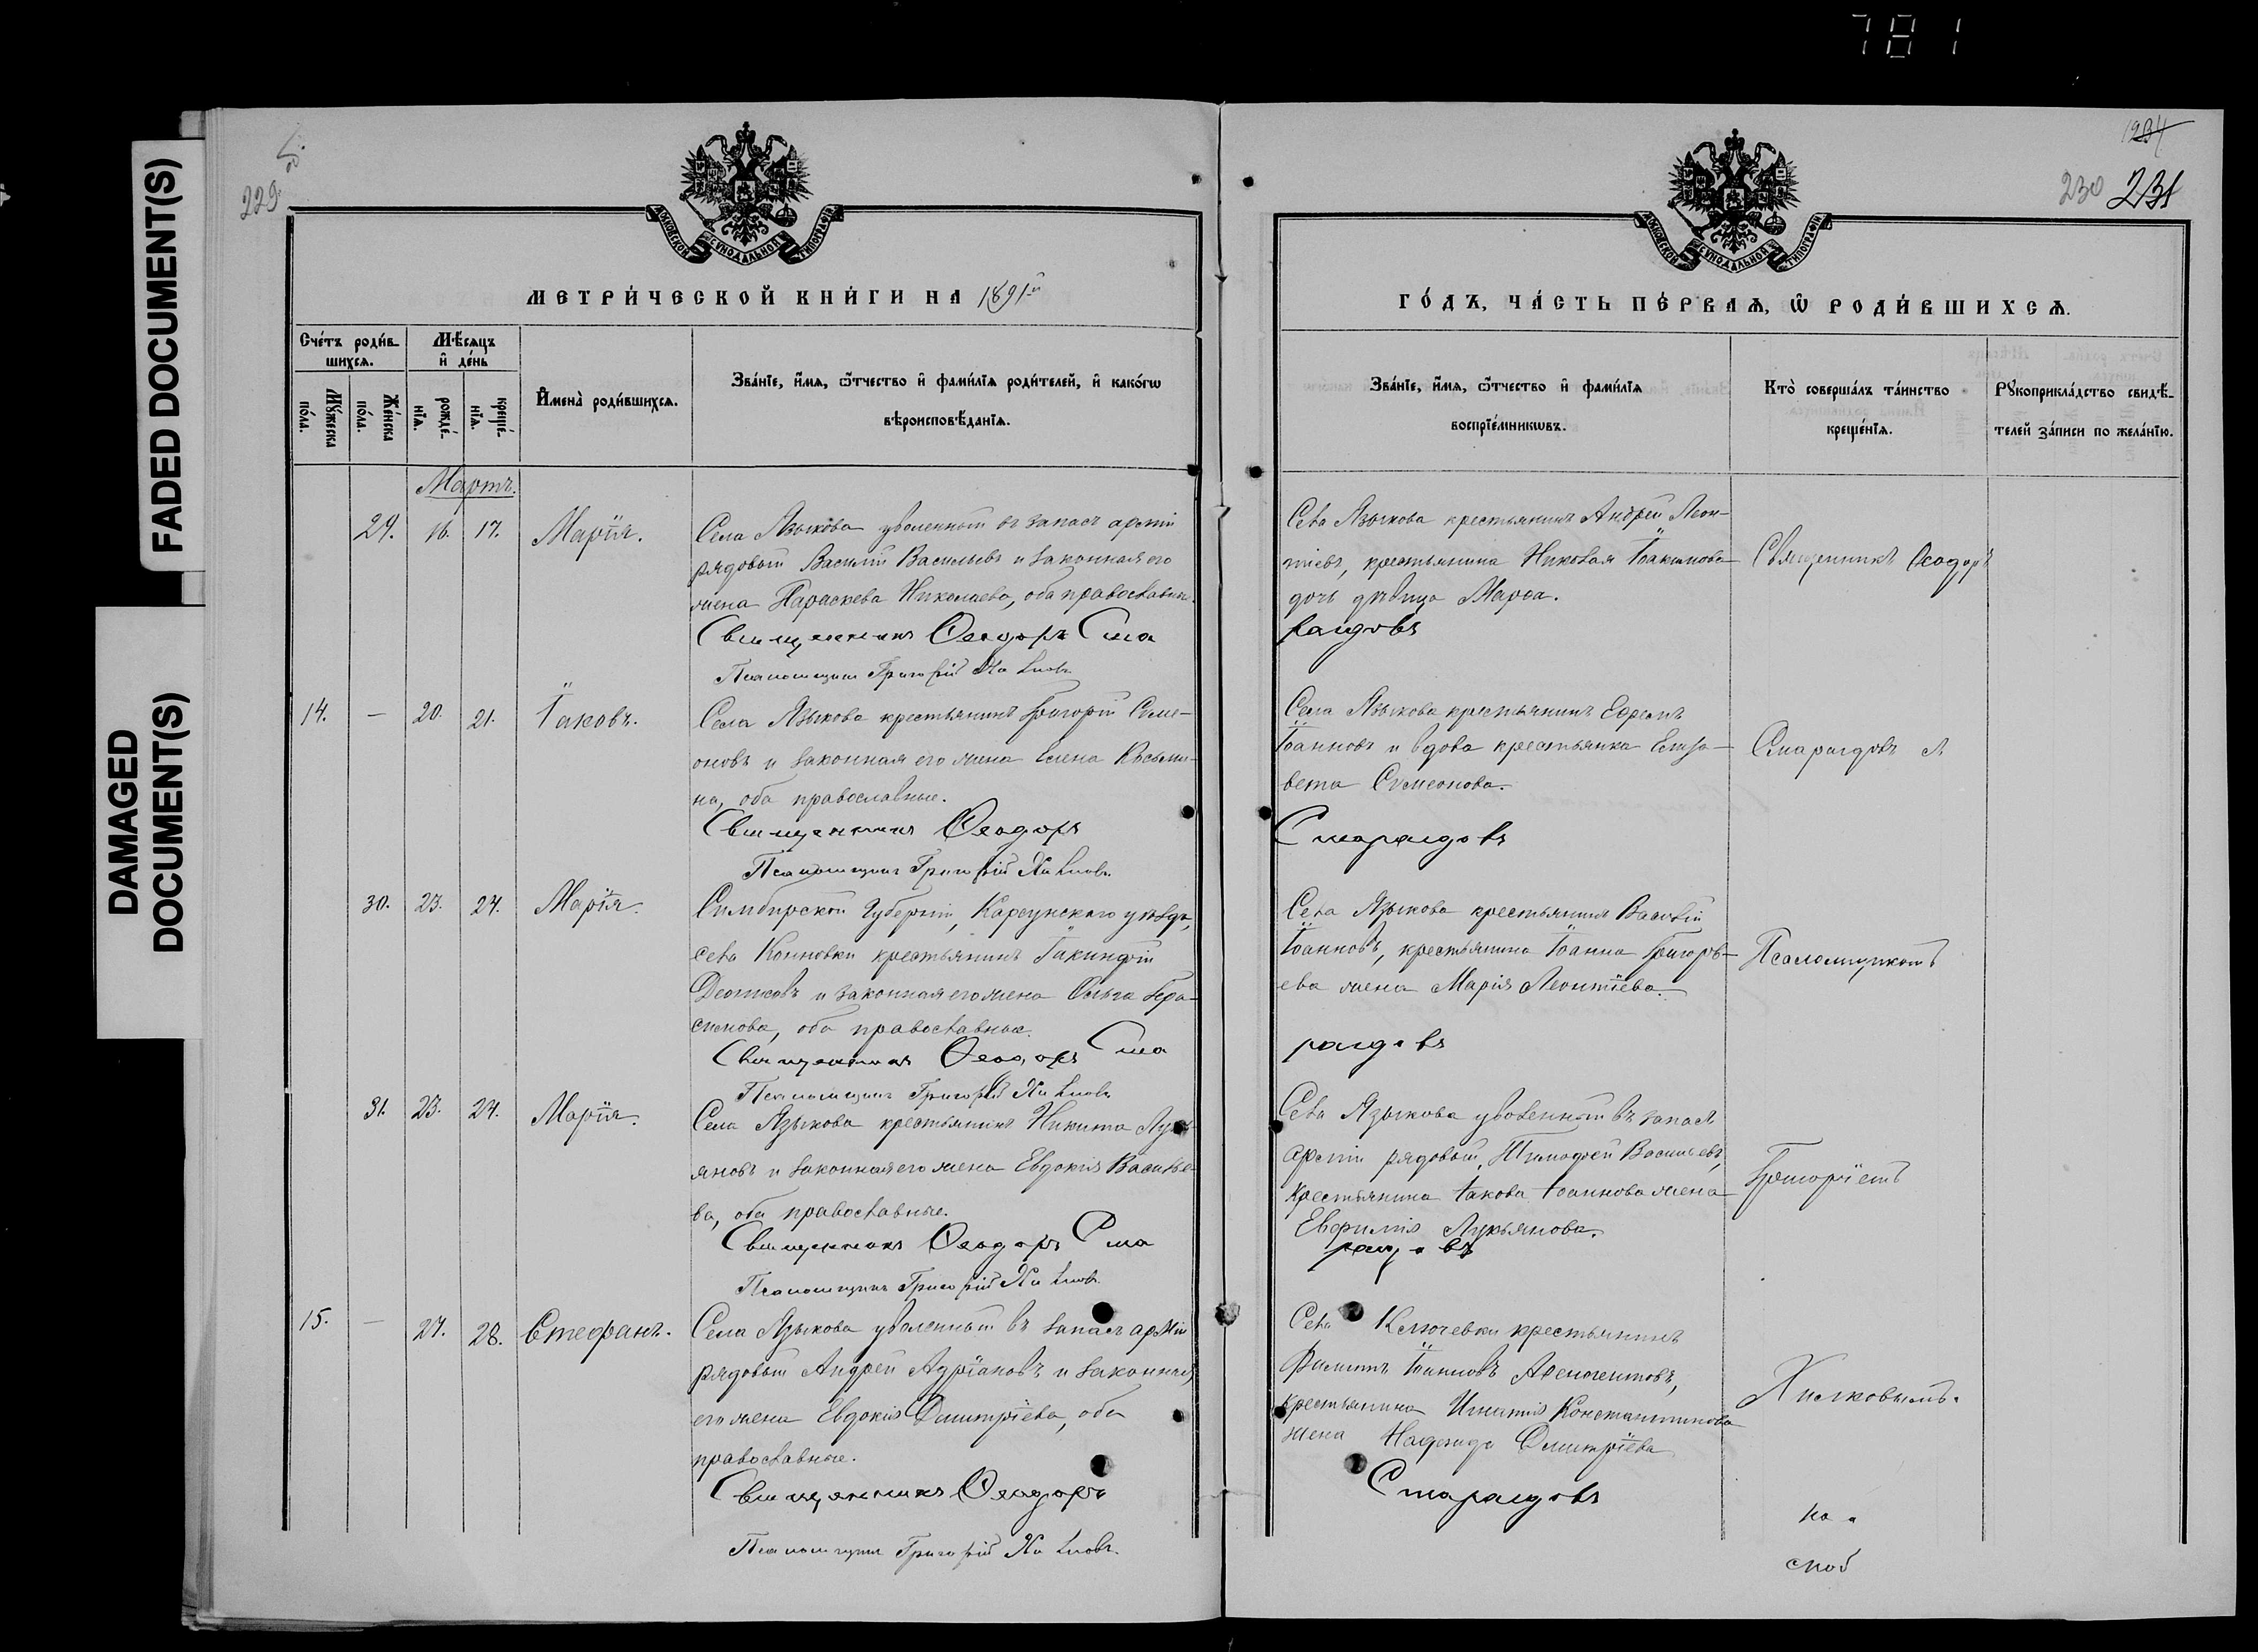 781
FADED DOCUMENT(S)
DAMAGED
DOCUMENT(S)
229.
МОСКОВСКОЙ СѴНОДАЛЬНОЙ ТИПОГРАФІИ
МЕТРИ́ЧЕСКОЙ КНИ́ГИ НА 1891й
Сче́тъ роди́в-
шихся.
Мѣ́сяцъ
и҆ де́нь
Мꙋ́жеска
по́ла.
Же́нска
по́ла.
рожде́-
нїя.
креще́-
нїя.
И҆мена̀ роди́вшихся.
Зва́нїе, и҆́мя, ѻ҆́тчество и҆ фами́лїя роди́телей, и҆ како́гѡ
вѣроисповѣ́данїя.
Мартъ.
29. 16. 17. Марія.
Села Языкова уволенный въ запасъ арміи
рядовой Василій Васильевъ и законная его
жена Параскева Николаева, оба православн.
Священникъ Ѳеодоръ Сма
Псаломщикъ Григорій Хилковъ
14. — 20. 21. Іаковъ.
Села Языкова крестьянинъ Григорій Симе-
оновъ и законная его жена Елена Косьми-
на, оба православные.
Священникъ Ѳеодоръ
Псаломщикъ Григорій Хилковъ
30. 23. 24. Марія.
Симбирской Губерніи, Карсунскаго уѣзда,
села крестьянинъ Іакинѳій
Денисовъ и законная его жена Ольга Гера-
симова, оба православные.
Священникъ Ѳеодоръ Сма
Псаломщикъ Григорій Хилковъ
31. 23. 24. Марія.
Села Языкова крестьянинъ Никита Лукь-
яновъ и законная его жена Евдокія Василье-
ва, оба православные.
Священникъ Ѳеодоръ Сма
Псаломщикъ Григорій Хилковъ
15. — 27. 28. Стефанъ.
Села Языкова уволенный въ запасъ арміи
рядовой Андрей Адріановъ и законная
его жена Евдокія Димитріева, оба
православные.
Священникъ Ѳеодоръ
Псаломщикъ Григорій Хилковъ.
1234
230 231
МОСКОВСКОЙ СѴНОДАЛЬНОЙ ТИПОГРАФІИ
ГО́ДЪ, ЧА́СТЬ ПЕ́РВАЯ, Ѡ҆ РОДИ́ВШИХСЯ.
Зва́нїе, и҆́мя, ѻ҆́тчество и҆ фами́лїя
воспрїе́мникѡвъ.
Кто̀ соверша́лъ та́инство
креще́нїя.
Рꙋкоприкла́дство свидѣ́-
телей за́писи по жела́нїю.
Села Языкова крестьянинъ Андрей Леон-
тіевъ, крестьянина Николая Іоакимова
дочь дѣвица Марѳа.
рагдовъ
Священникъ Ѳеодоръ
Села Языкова крестьянинъ Ефремъ
Іоанновъ и вдова крестьянка Елиса-
вета Симеонова.
Смарагдовъ
Смарагдовъ съ
Села Языкова крестьянинъ Василій
Іоанновъ, крестьянина Іоанна Григорь-
ева жена Марія Леонтіева.
рагдовъ
Псаломщикомъ
Села Языкова уволенный въ запасъ
арміи рядовой Тимоѳей Васильевъ,
крестьянина Іакова Іоаннова жена
Евфимія Лукьянова.
рагдовъ
Григоріемъ
Села Ключевки крестьянинъ
Филиппъ Іоанновъ
крестьянина Игнатія Константинова
жена Надежда Димитріева
Смарагдовъ
Хилковымъ.